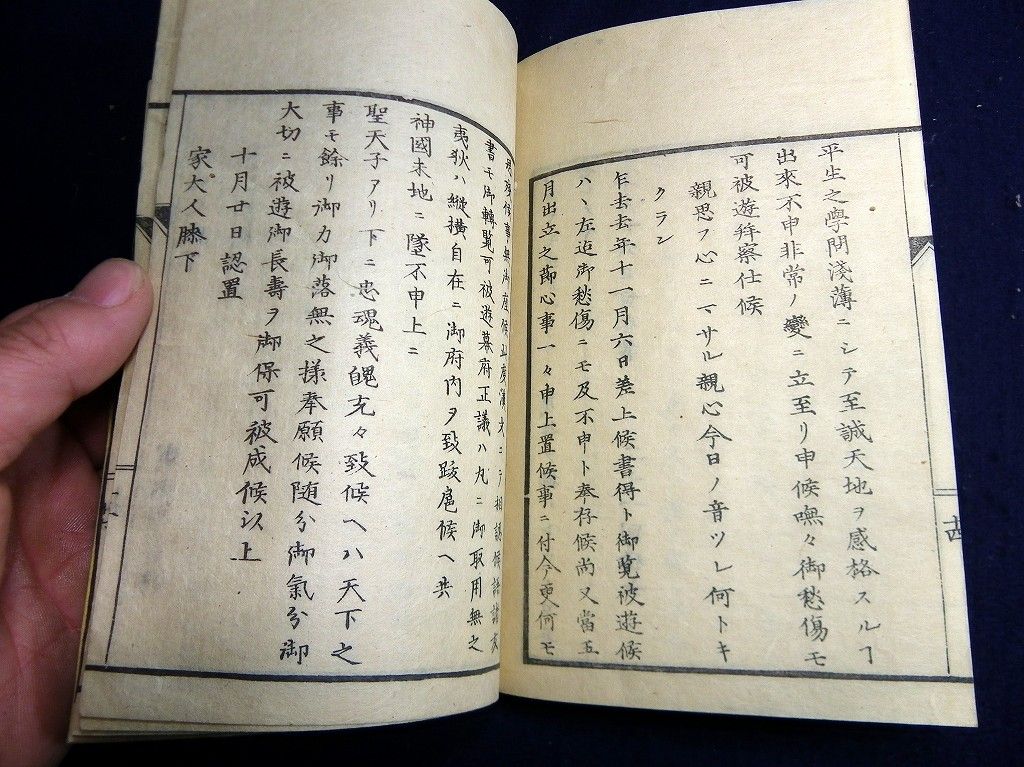 平生之學問淺薄ニシテ至誠天地ヲ感格スルヿ
出來不申非常ノ變ニ立至リ申候嘸々御愁傷モ
可被遊拜察仕候
親思フ心ニマサル親心今日ノ音ツレ何トキ
クラン
乍去去年十一月六日差上候書得ト御覧被遊候
ハヽ左迄御愁傷ニモ及不申ト奉存候尚又當五
月出立之節心事一々申上置候事ニ付今更何モ
候事無御座候此度漢文ニテ相認候語諸友
書モ御轉覧可被遊幕府正議ハ丸ニ御取用無之
夷狄ハ縱横自在ニ御府内ヲ致跋扈候ヘ共
神國未地ニ墜不申上ニ
聖天子アリ下ニ忠魂義魄充々致候ヘハ天下之
事モ餘リ御力御落無之様奉願候随分御氣分御
大切ニ被遊御長壽ヲ御保可被成候以上
十月廿日認置
家大人膝下